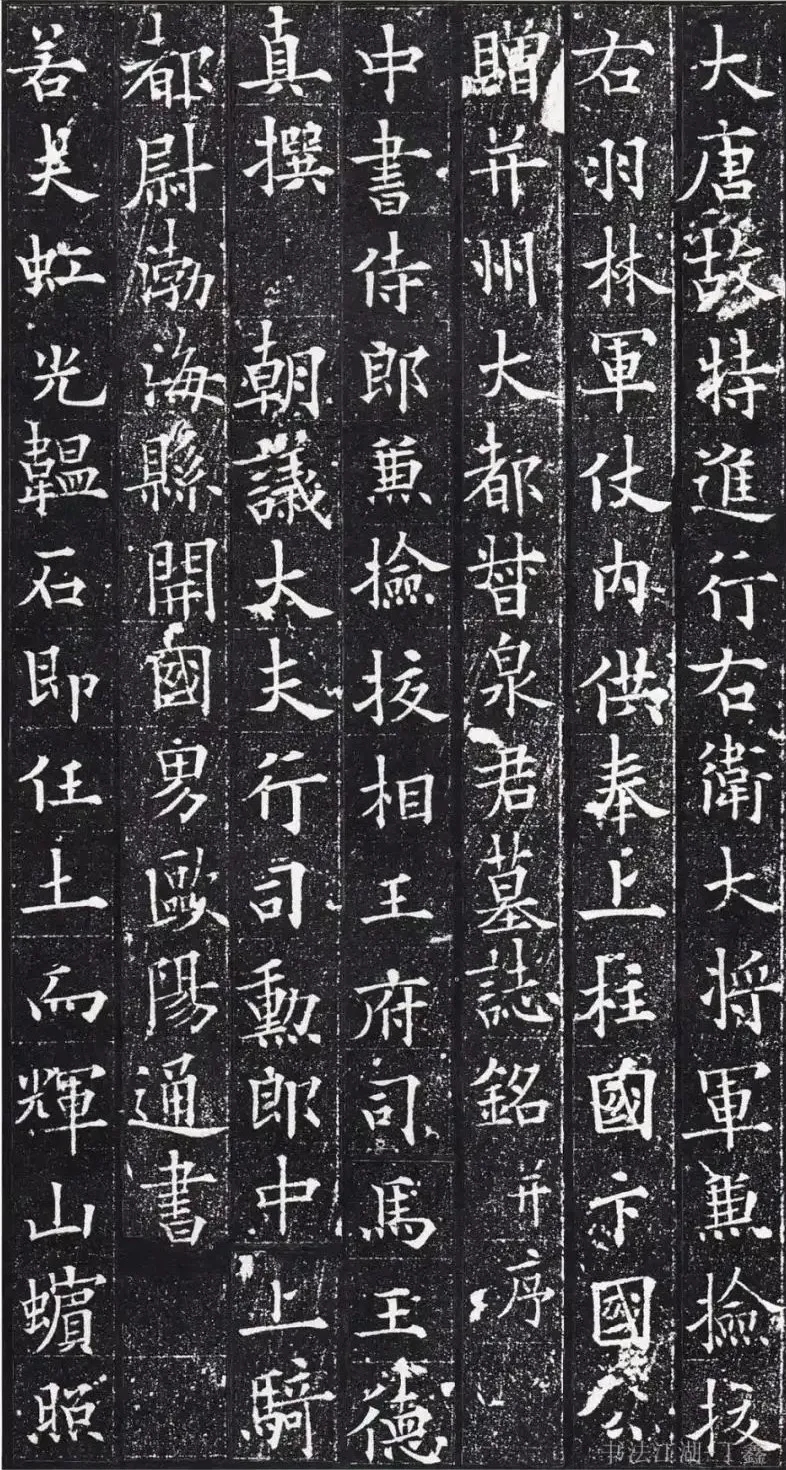 大唐故特進行右衛大將軍兼撿挍
右羽林軍仗內供奉上柱國卞國公
贈并州大都督泉君墓誌銘 并序
中書侍郎兼撿挍相王府司馬王德
真撰 朝議大夫行司勳郎中上騎
都尉渤海縣開國男歐陽通書
若夫虹光韞石即任土而輝山蠙照
书法江湖 丁鑫